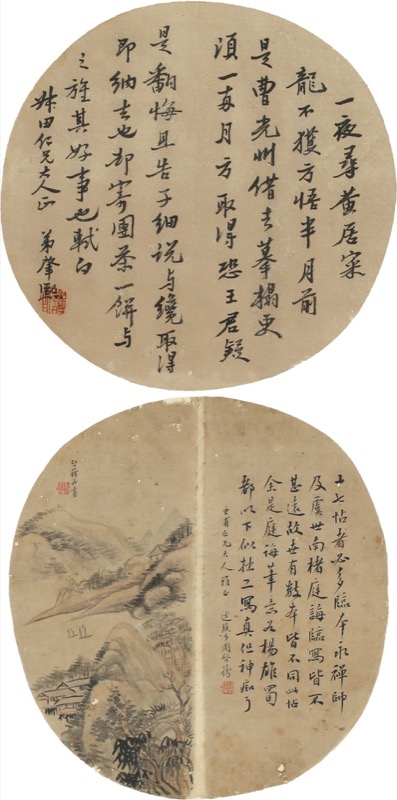 一夜尋黃居寀
龍不獲方悟半月前
是曹光州借去摹搨更
須一兩月方取得恐王君疑
是翻悔且告子細說與纔取得
即納去也却寄團茶一餅與
之旌其好事也軾白
田仁兄大人正 弟肇
十七帖者必多臨本永禪師
及虞世南褚庭誨臨寫皆不
甚遠故世有數本皆不同此帖
全是庭誨筆意若楊雄蜀
都以下似杜二寫真但神痴耳
仁兄大人雅正